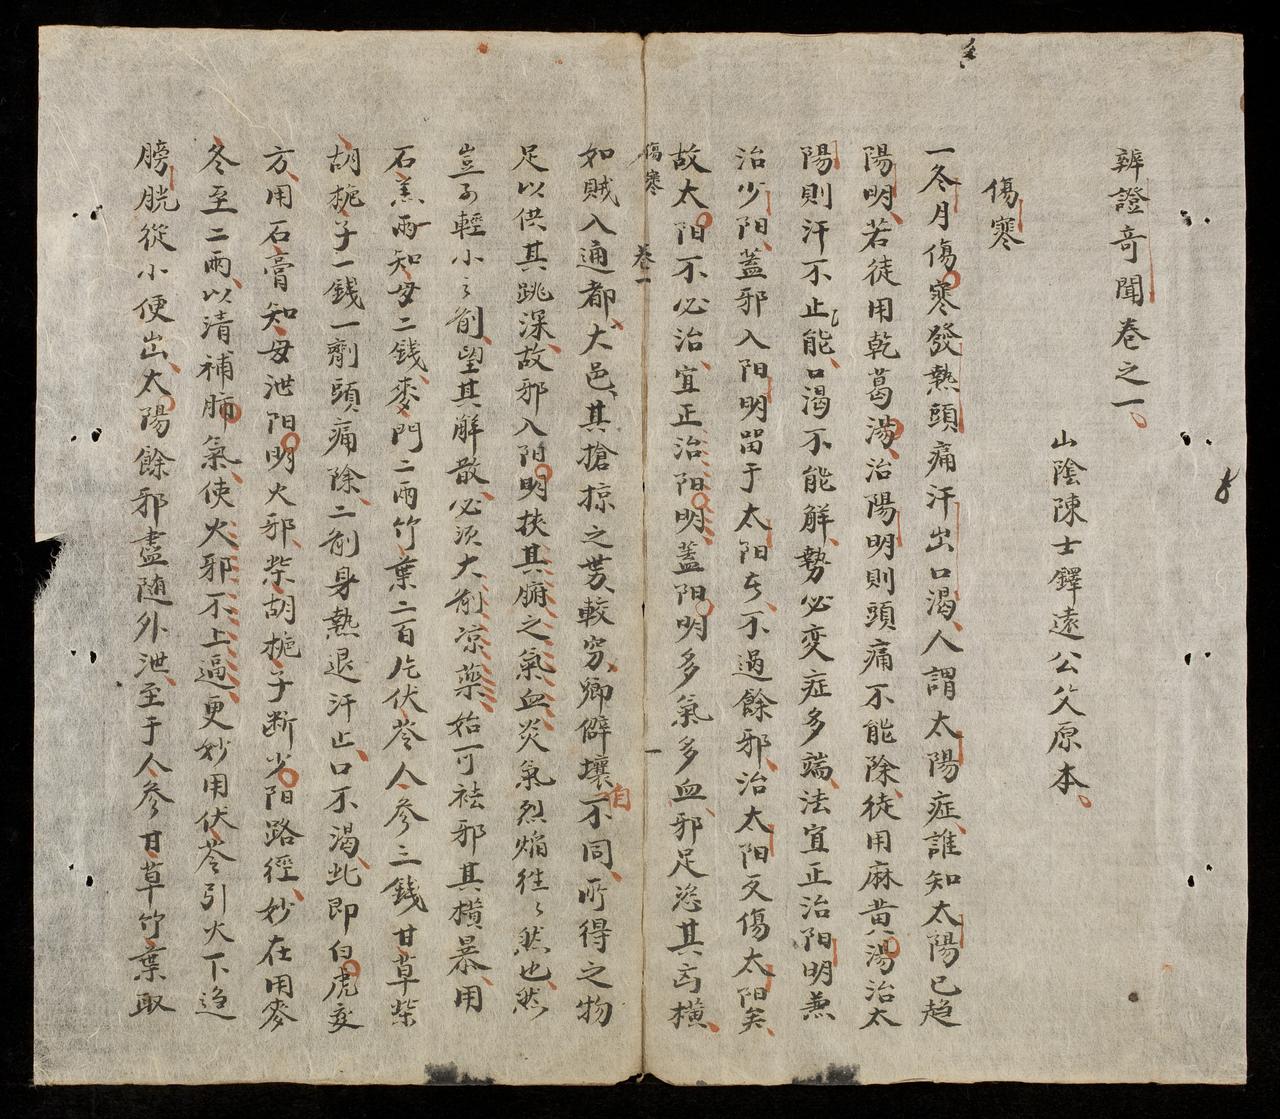 辨證竒聞卷之一
山陰陳士鐸遠公父原本
傷寒
一冬月傷寒發熱頭痛汗出口渴人謂太陽症誰知太陽已趋
陽明若徒用乾葛湯治陽明則頭痛不能除徒用麻黄湯治太
陽則汗不止能口渴不能解勢必变症多端法宜正治阳明兼
治少阳蓋邪入阳明留于太阳者不過餘邪治太阳反傷太阳矣
故太阳不必治宜正治阳明蓋阳明多氣多血邪足恣其横
傷寒 卷一 一
如賊入通都大邑其搶掠之势較穷鄉僻壤自不同所得之物
足以供其跳深故邪入阳明挟其腑之氣血炎氣烈焰往〻然也然
豈可輕小〻剤望其解散必须大剤凉藥始可祛邪其横暴用
石羔兩知母二錢麥門二兩竹葉二百片伏苓人參三錢甘草柴
胡栀子一錢一劑頭痛除二剤身熱退汗止口不渴此即白虎变
方用石膏知母泄阳明火邪柴胡栀子断少阳路徑妙在用麥
冬至二兩以清補肺氣使火邪不上逼更妙用伏苓引火下趋
膀胱從小便出太陽餘邪盡随外泄至于人參甘草竹葉取